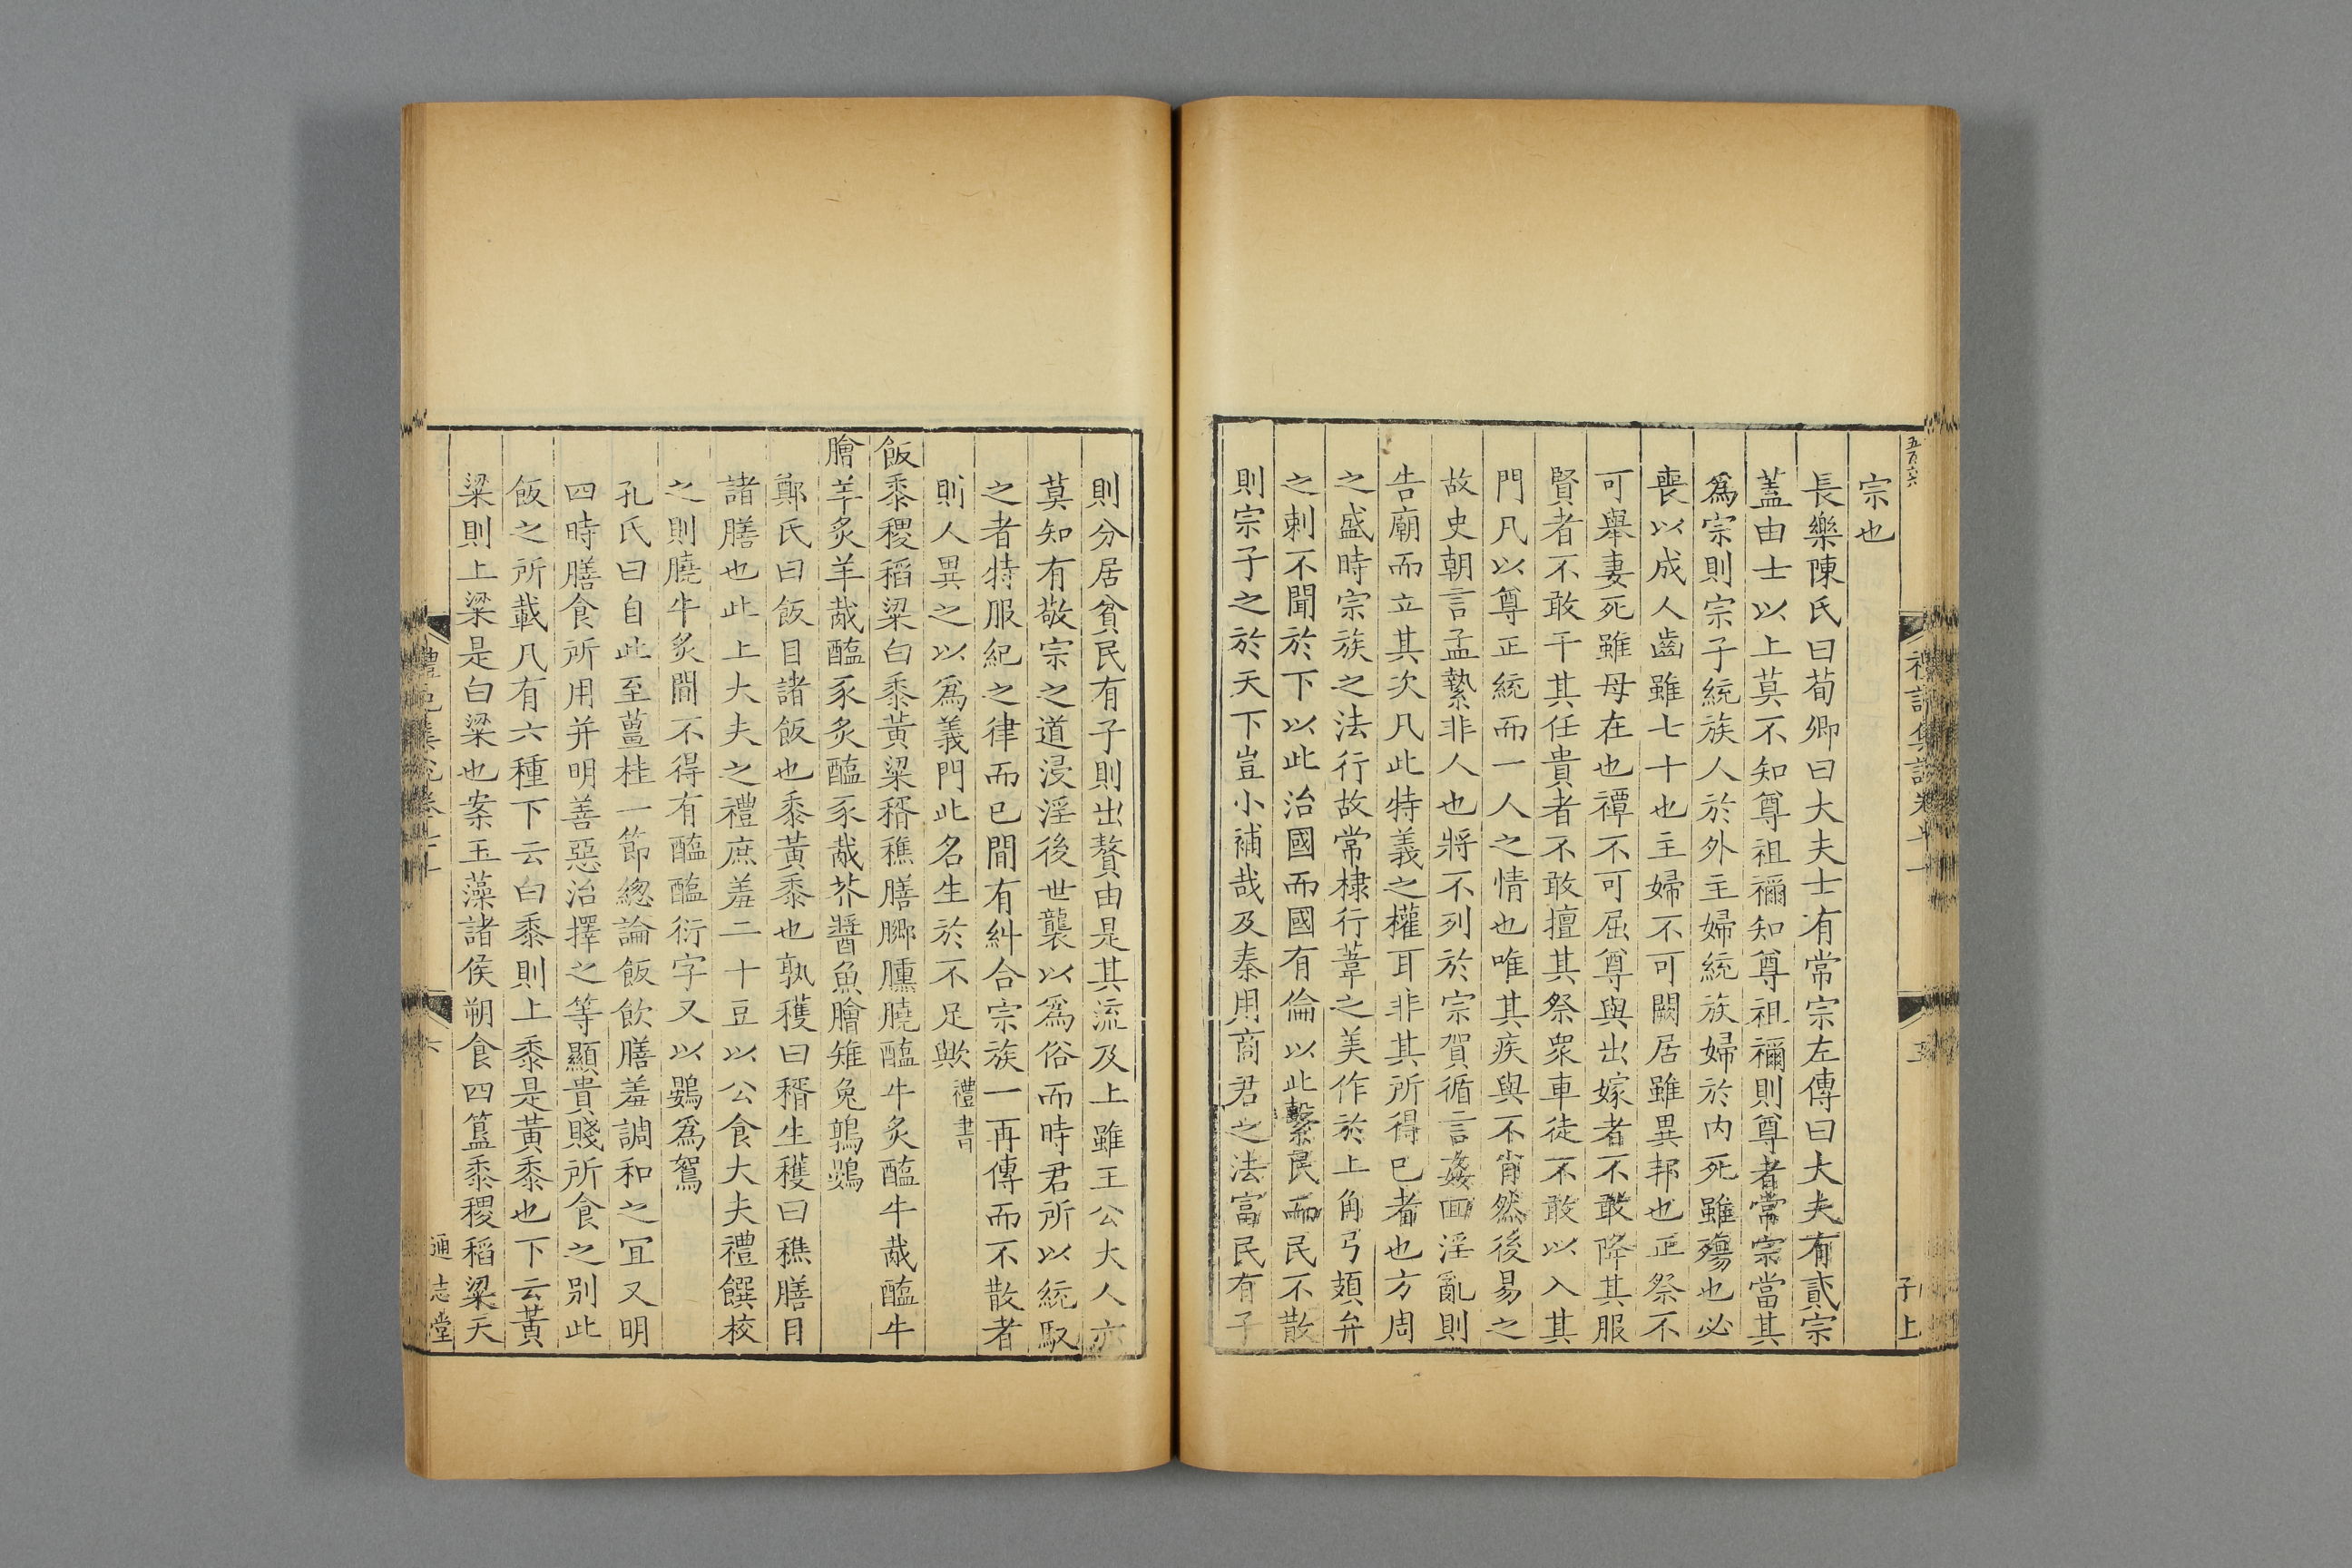 宗也
長樂陳氏曰荀卿曰大夫士有常宗左傳曰大夫有貳宗
蓋由士以上莫不知尊祖禰知尊祖禰則尊者常宗當其
爲宗則宗子統族人於外主婦統族婦於内死雖殤也必
喪以成人齒雖七十也主婦不可闕居雖異邦也正祭不
可舉妻死雖母在也禫不可屈尊與出嫁者不敢降其服
賢者不敢干其任貴者不敢擅其祭衆車徒不敢以入其
門凡以尊正統而一人之情也唯其疾與不肖然後易之
故史朝言孟縶非人也將不列於宗賀循言姦回淫亂則
告廟而立其次凡此特義之權耳非其所得已者也方周
之盛時宗族之法行故常棣行葦之美作於上角弓頍弁
之刺不聞於下以此治國而國有倫以此繫民而民不散
則宗子之於天下豈小補哉及秦用商君之法富民有子
則分居貧民有子則出贅由是其流及上雖王公大人亦
莫知有敬宗之道浸淫後世襲以爲俗而時君所以統馭
之者特服紀之律而已間有糾合宗族一再傳而不散者
則人異之以爲義門此名生於不足歟禮書
飯黍稷稻粱白黍黃粱稰穛膳膷臐膮醢牛炙醢牛胾醢牛
膾羊炙羊胾醢豕炙醢豕胾芥醬魚膾雉兔鶉鷃
鄭氏曰飯目諸飯也黍黃黍也孰穫曰稰生穫曰穛膳目
諸膳也此上大夫之禮庶羞二十豆以公食大夫禮饌校
之則膮牛炙間不得有醢醢衍字又以鷃爲鴽
孔氏曰自此至薑桂一節總論飯飲膳羞調和之宜又明
四時膳食所用并明善惡治擇之等顯貴賤所食之别此
飯之所載凡有六種下云白黍則上黍是黃黍也下云黃
粱則上粱是白粱也案玉藻諸侯朔食四簋黍稷稻粱天
五百六六
禮記集說卷七十一
五
子上
六
通志堂